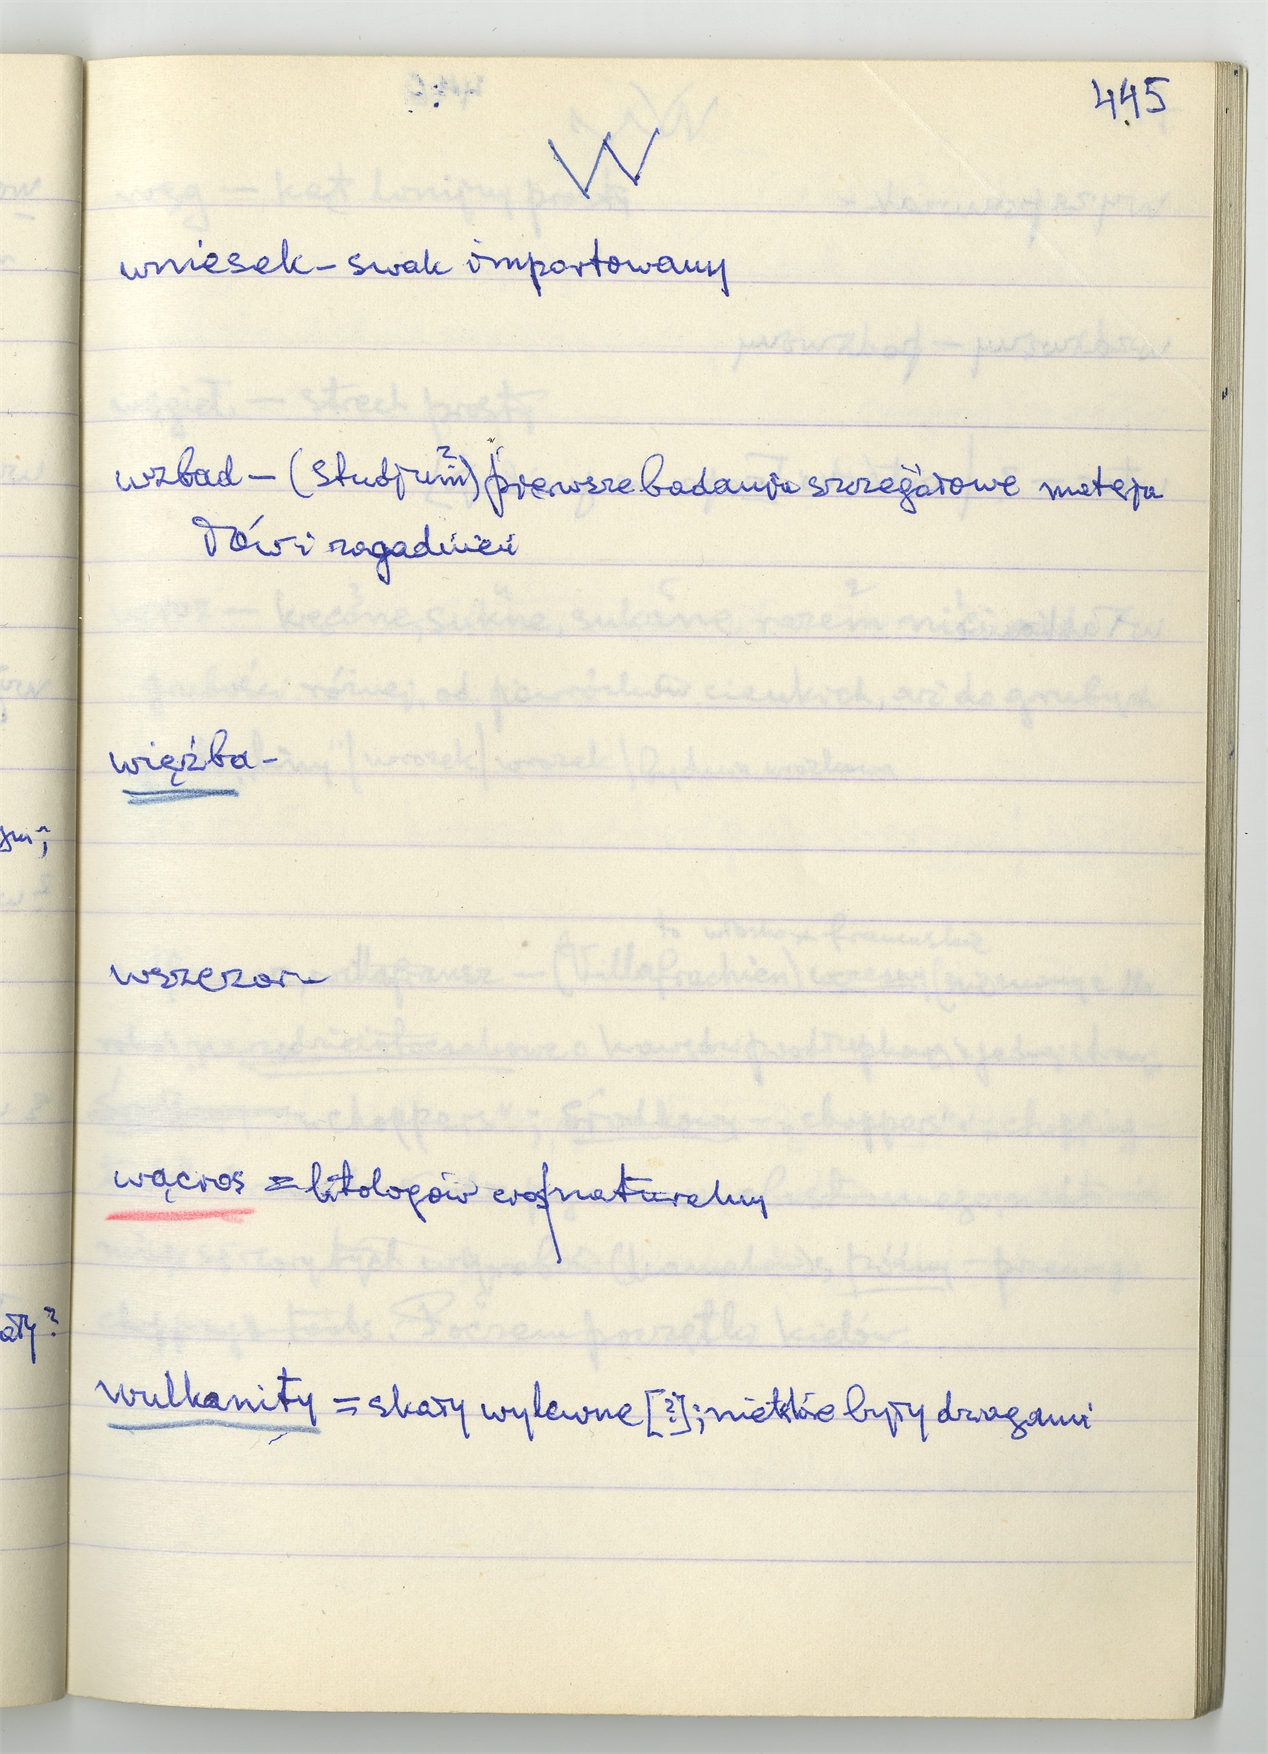 445
W
wniesek – swak importowany
wzbad – (studjum?) pierwsze badania szczegółowe materja
łów i zagadnień
więźba –
wszezar –
wącios = litologów cios naturalny
wulkanity = skały wylewne [?]; niektóre były drogami